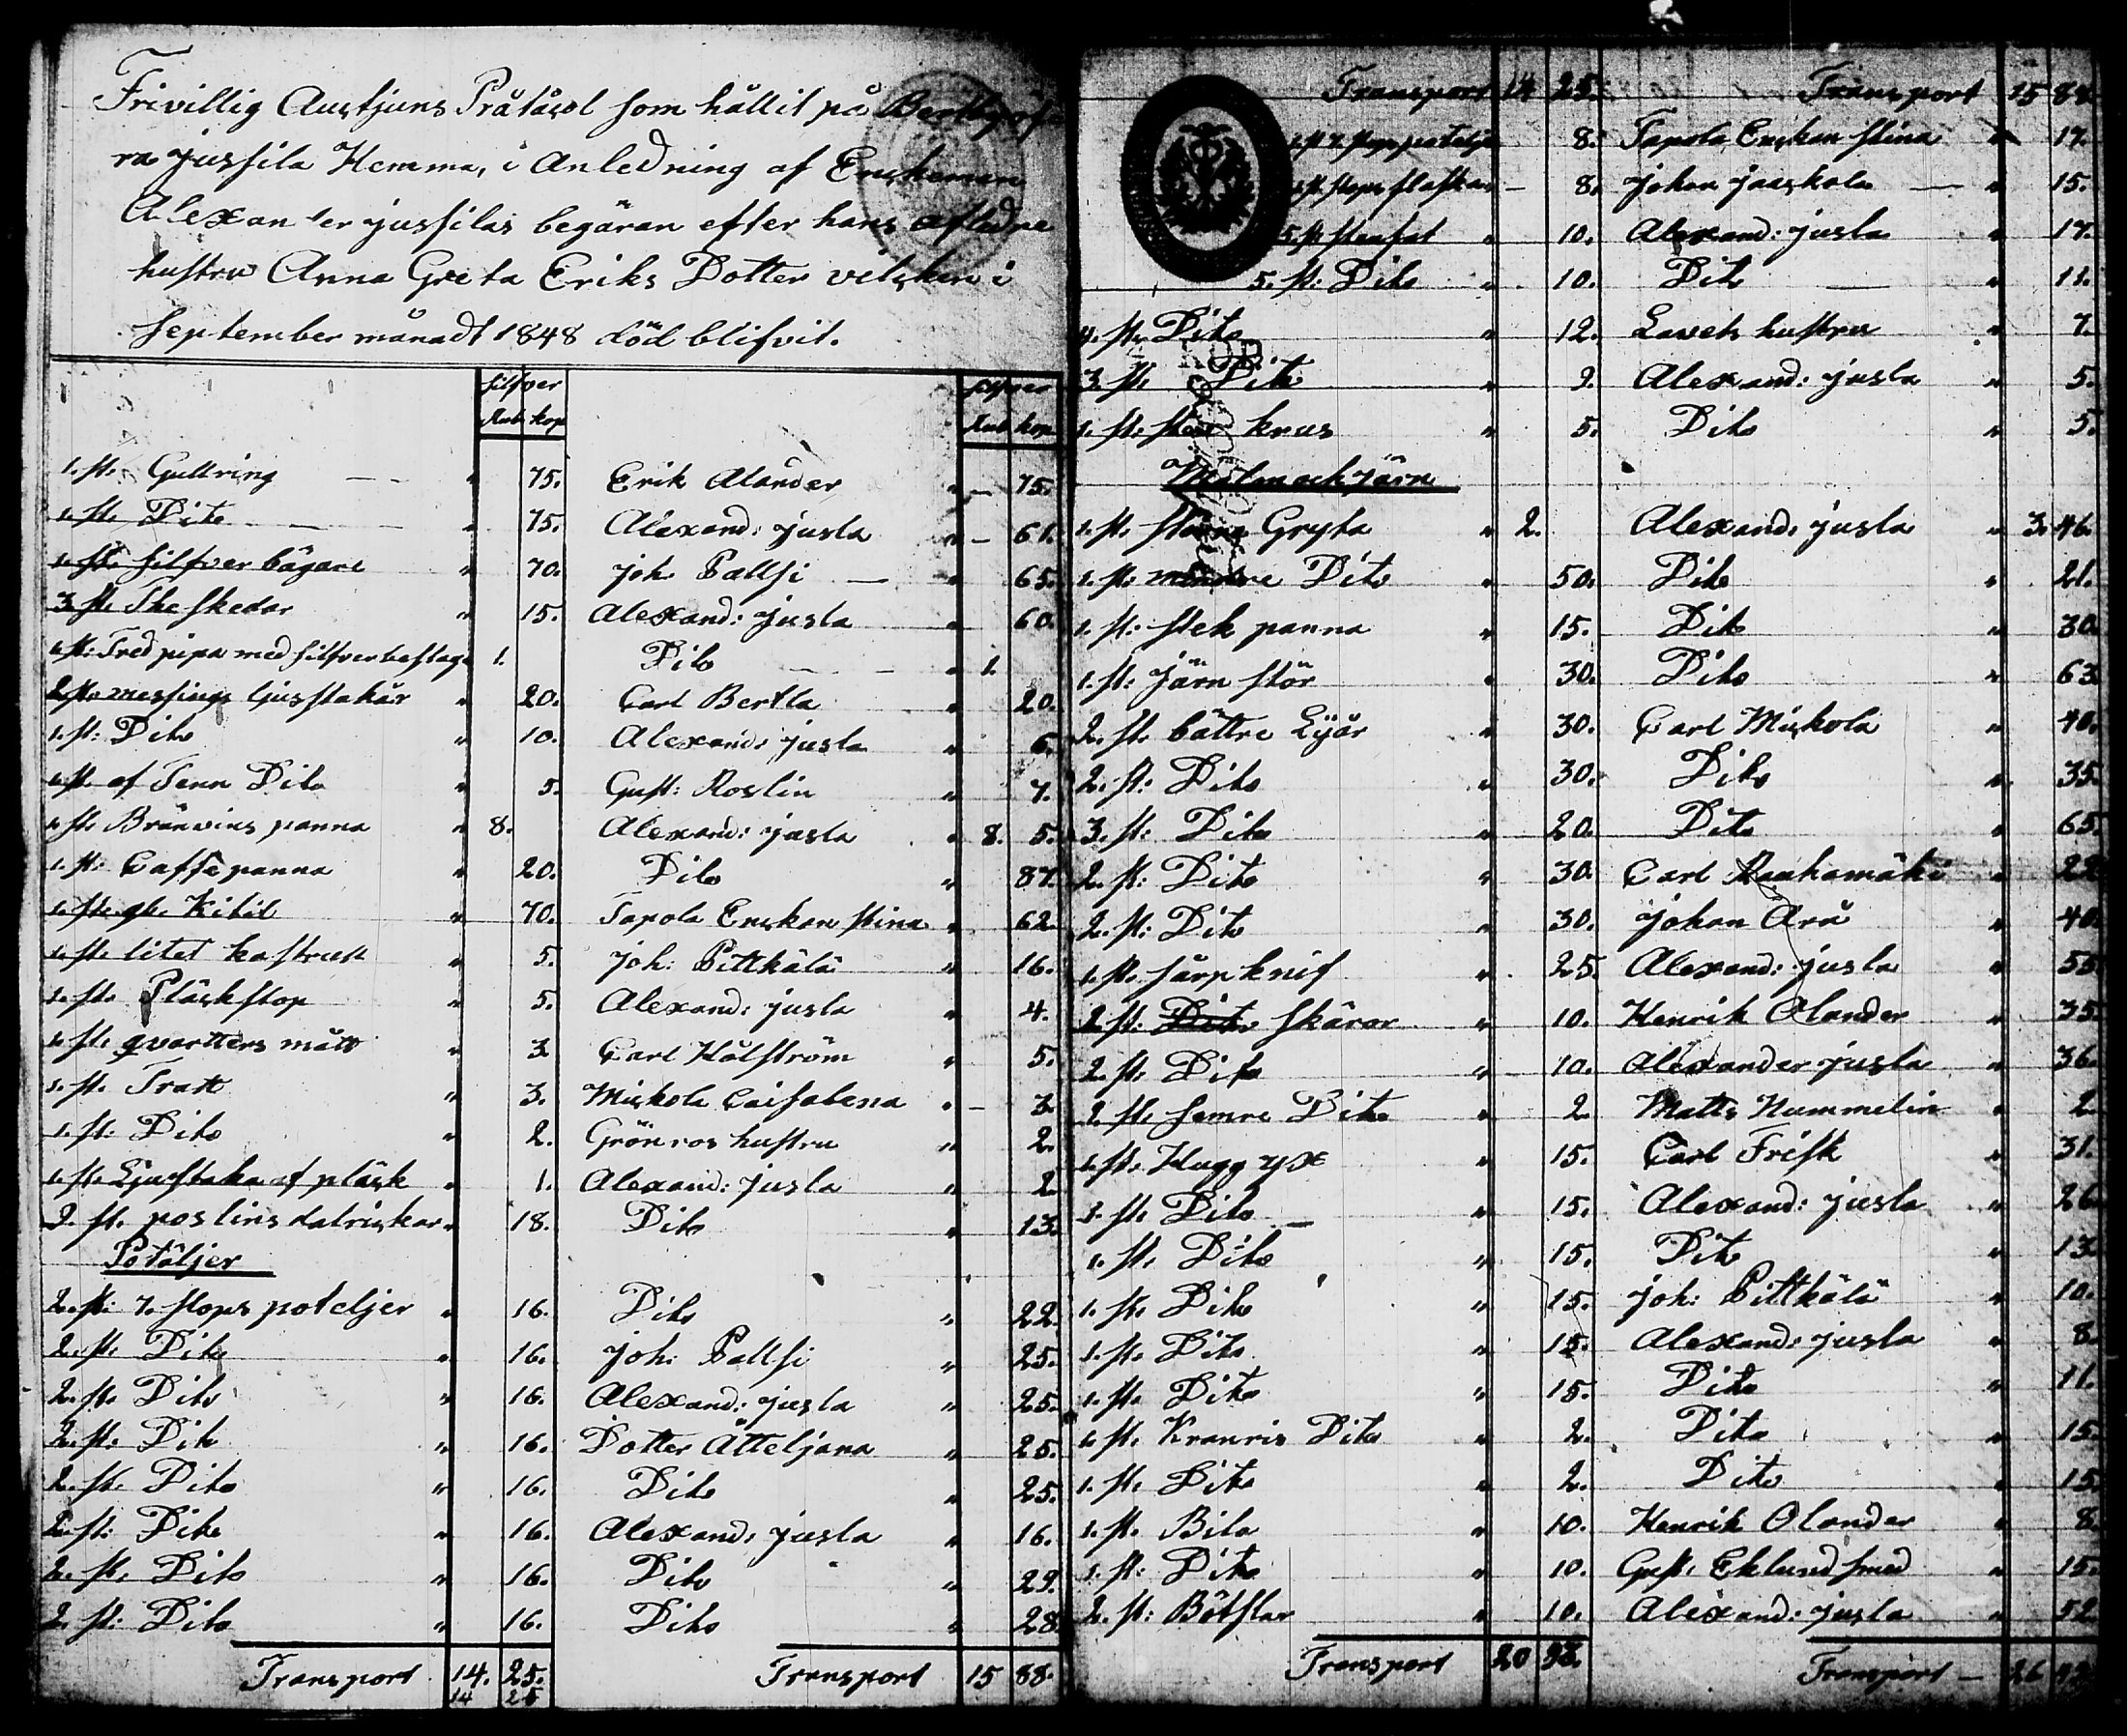 Frivillig Auctjuns Pråtåcol som hållit på
ra jussila Hemma, i Anledning af Enckeman
Alexander jussilas begäran efter hans afledne
hustru Anna Greta Eriks Dotter vilcken i
September månadt 1848 död blifvit.
silfver silfver
Rub kop Rub kop
1. st. Gullring " 75. Erik Alander " 75.
1. st. Dito " 75. Alexand: jusla " 61.
1. st. silfver bägare " 70. joh. Pallsi " 65.
3 st. The skedar " 15. Alexand: jusla " 60.
1. st: Tred pipa med silfverbeslag 1. Dito " 1.
2. st. messings ljusstakar " 20. Carl Bertla " 20.
1. st: Dito " 10. Alexand: jusla " 6.
1. st. af Tenn Dito " 5. Gust: Roslin " 7.
1. st. Bränvins panna " 8. Alexand: jusla " 8. 5.
1. st: Caffe panna " 20. Dito " 87.
1. st. gl. Kitil " 70. Tapola Enckan Stina " 62.
1. st. litet kastrull " 5. joh: Pittkälä " 16.
1. st. Pläckstop " 5. Alexand: jusla " 4.
1. st. qvartters mått " 3. Carl Hålström " 5.
1. st. Tratt " 3. Mickola Caisalena " 3
1. st: Dito " 2. Grönros hustru " 2.
1. st. Ljusstaka af pläck " 1. Alexand: jusla " 2
2. st. poslins dalrickar " 18. Dito " 13.
Potäljer
2. st: 7. stops poteljer " 16. Dito " 22.
2. st. Dito " 16. joh: Pallsi " 25.
2. st. Dito " 16. Alexand: jusla " 25.
2. st: Dito " 16. Dotter Atteljana " 25.
2. st. Dito " 16. Dito " 25.
2. st: Dito " 16. Alexand: jusla " 16.
2. st. Dito " 16. Dito " 29.
2. st: Dito " 16. Dito " 28.
Transport 14. 25. Transport 15 88.
14 25
Transport 14 25. Transport 15 88.
8. Tapola Enckan Stina " 17.
8. johan jaaskola " 15.
5. st stenfat " 10. Alexand: jusla " 17.
5. st: Dito " 10. Dito " 11.
4. st. Dito " 12. hustru " 7.
3 st. Dito " 9. Alexand: jusla " 5.
1. st. sten krus " 5. Dito " 5.
Malm och järn
1. st. Gryta " 2. Alexand: jusla " 3. 46.
1. st. mindre Dito " 50. Dito " 21.
1. st: stek panna " 15. Dito " 30.
1. st: järn stör " 30. Dito " 63.
2. st. bättre Lijår " 30. Carl Mickola " 40.
2. st: Dito " 30. Dito " 35.
3. st: Dito " 20. Dito " 65.
2. st: Dito " 30. Carl Rauhamäki " 22
2. st: Dito " 30. johan Arä " 40.
1. st. sårpknif " 25. Alexand: jusla " 55
2. st: Dito skäror " 10. Henrik Olander " 35.
2. st. Dito " 10. Alexander jusla " 36.
2. st. semre Dito " 2 Matts Nummelin " 2
1. st. Hugg yx " 15. Carl Frisk " 31.
1. st. Dito " 15. Alexand: jusla " 26
1. st. Dito " 15. Dito " 13.
1. st. Dito " 15. joh: Pittkälä " 10.
1. st. Dito " 15. Alexand: jusla " 8.
1. st. Dito " 15. Dito " 11.
1. st. Kranris Dito " 2. Dito " 15.
1. st. Dito " 2. Dito " 15
1. st. Bila " 10. Henrik Olander " 8.
1. st: Dito " 10. Gust. Eklund smed " 15.
2. st: Båtslar " 10. Alexand: jusla " 52
Transport 20 Transport 26